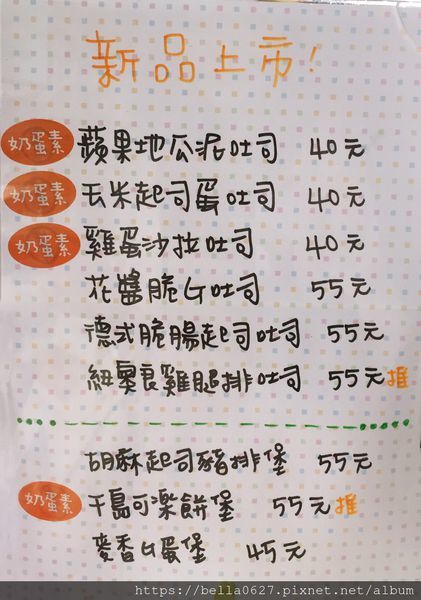 新品上市!
奶蛋素 蘋果地瓜泥吐司 40元
奶蛋素 玉米起司蛋吐司 40元
奶蛋素 雞蛋沙拉吐司 40元
花醬脆G吐司 55元
德式脆腸起司吐司 55元
紐奧良雞腿排吐司 55元推
胡麻起司豬排堡 55元
奶蛋素 千島可樂餅堡 55元推
麥香G蛋堡 45元
https://bella0627.pixnet.net/album